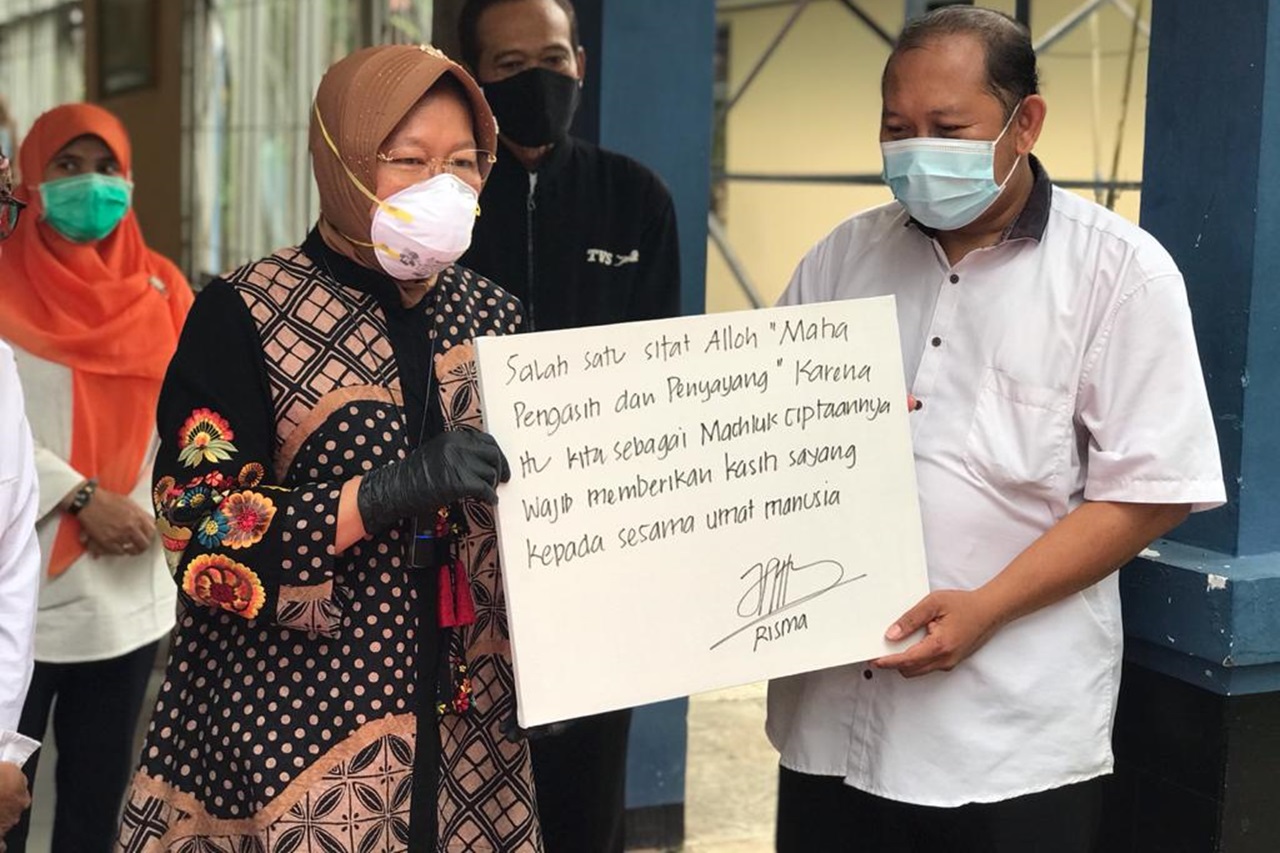 TVS
Salah satu sifat Alloh "Maha
Pengasih dan Penyayang" Karena
itu kita sebagai Machluk Ciptaannya
wajib memberikan kasih sayang
kepada sesama umat manusia
RISMA